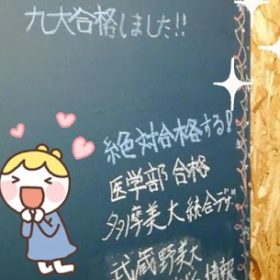 九大合格しました!!
絶対合格する!
医学部合格
多摩美大統合デザ
武蔵野美大
情報